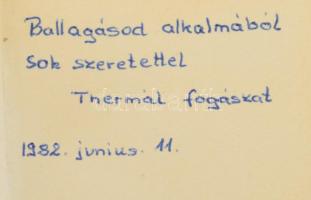 Ballagásod alkalmából
Sok szeretettel
Thermál fogászat
1982. junius. 11.